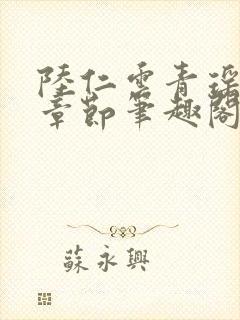 陸仁雲青瑶
章節筆趣閣
蘇永興